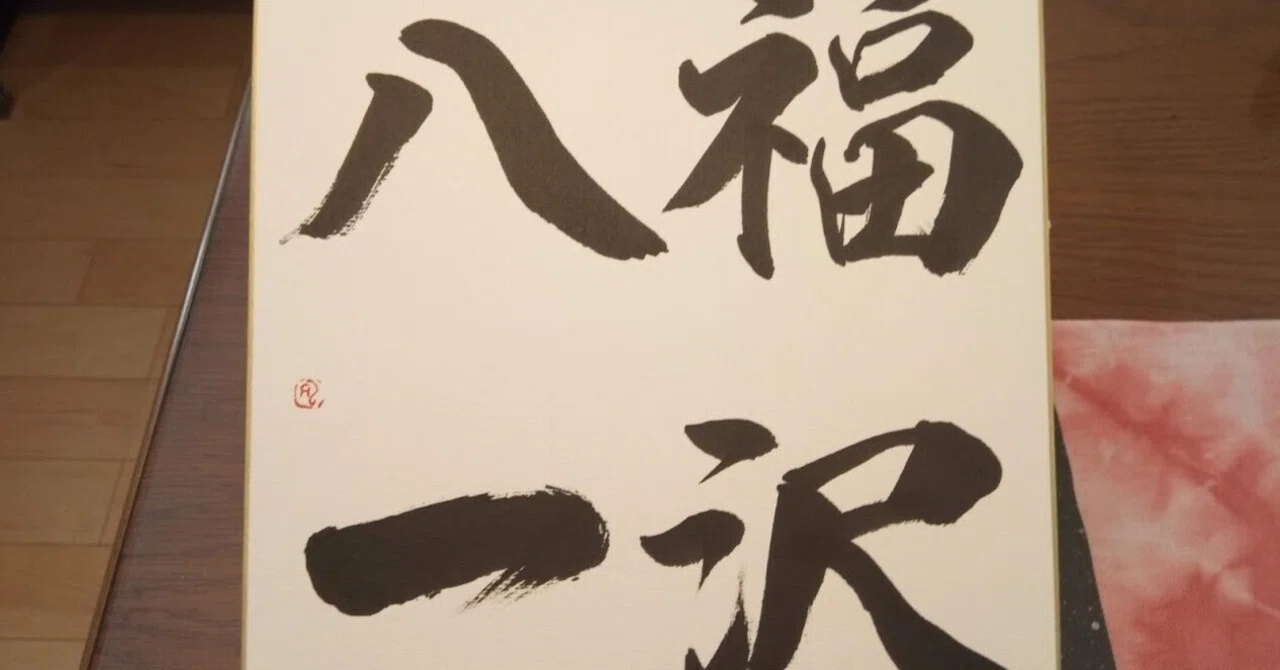 福沢
八一